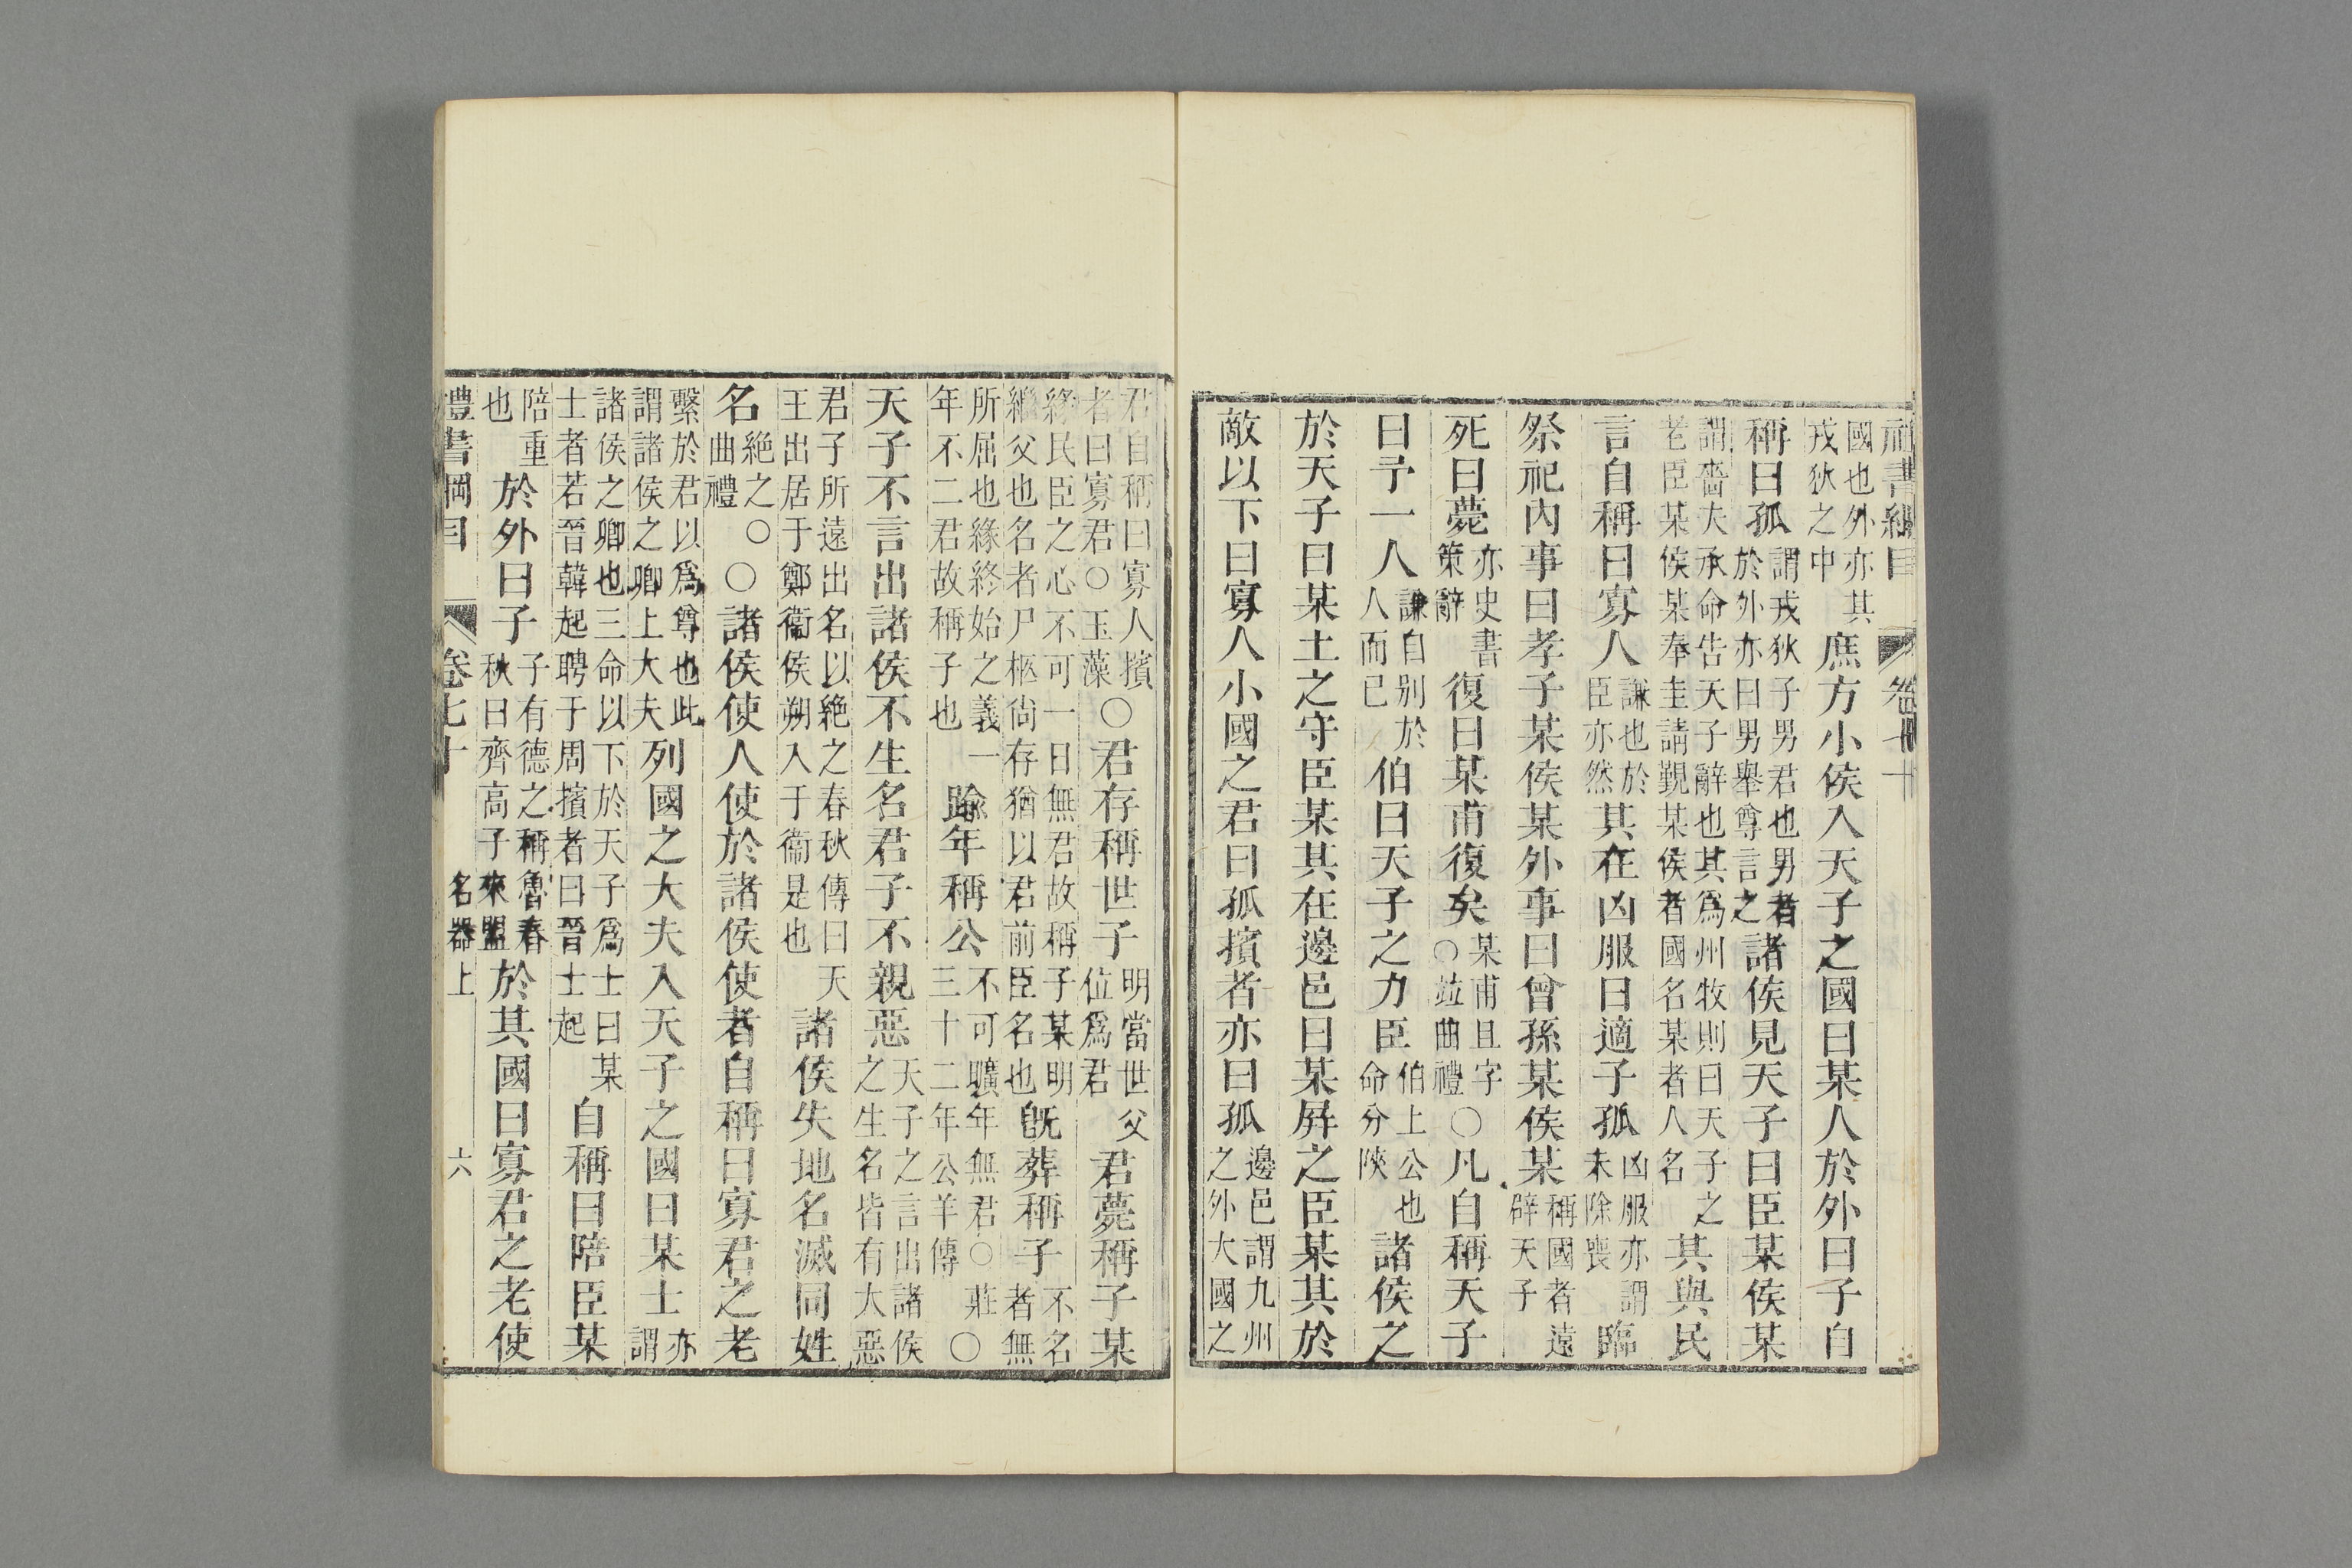 禮書綱目 卷七十
國也外亦其
戎狄之中
庶方小侯入天子之國曰某人於外曰子自
稱曰孤
謂戎狄子男君也男者
於外亦曰男舉尊言之
諸侯見天子曰臣某侯某
謂嗇夫承命告天子辭也其爲州牧則曰天子之
老臣某侯某奉圭請覲某侯者國名某者人名
其與民
言自稱曰寡人
謙也於
臣亦然
其在凶服曰適子孤
凶服亦謂
未除喪
臨
祭祀内事曰孝子某侯某外事曰曾孫某侯某
稱國者遠
辟天子
死曰薨
亦史書
策辭
復曰某甫復矣
某甫且字
○竝曲禮
○凡自稱天子
曰予一人
謙自别於
人而已
伯曰天子之力臣
伯上公也
命分陝
諸侯之
於天子曰某土之守臣某其在邊邑曰某屛之臣某其於
敵以下曰寡人小國之君曰孤擯者亦曰孤
邊邑謂九州
之外大國之
君自稱曰寡人擯
者曰寡君○玉藻
○君存稱世子
明當世父
位爲君
君薨稱子某
緣民臣之心不可一日無君故稱子某明
繼父也名者尸柩尚存猶以君前臣名也
旣葬稱子
不名
者無
所屈也緣終始之義一
年不二君故稱子也
踰年稱公
不可曠年無君○莊
三十二年公羊傳
○
天子不言出諸侯不生名君子不親惡
天子之言出諸侯
之生名皆有大惡
君子所遠出名以絶之春秋傳曰天
王出居于鄭衞侯朔入于衞是也
諸侯失地名滅同姓
名
絶之○
曲禮
○諸侯使人使於諸侯使者自稱曰寡君之老
繫於君以爲尊也此
謂諸侯之卿上大夫
列國之大夫入天子之國曰某士
亦
謂
諸侯之卿也三命以下於天子爲士曰某
士者若晉韓起聘于周擯者曰晉士起
自稱曰陪臣某
陪重
也
於外曰子
子有德之稱魯春
秋曰齊高子來盟
於其國曰寡君之老使
禮書綱目 卷七十 名器上 六